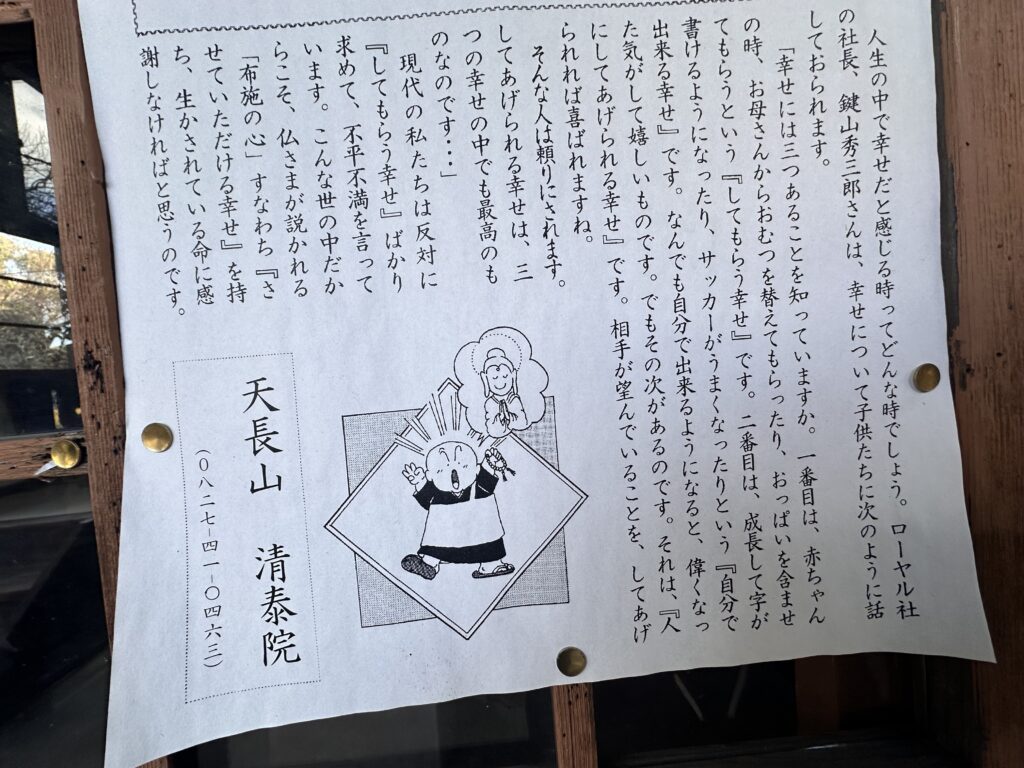 人生の中で幸せだと感じる時ってどんな時でしょう。ローヤル社
の社長、鍵山秀三郎さんは、幸せについて子供たちに次のように話
しておられます。
「幸せには三つあることを知っていますか。一番目は、赤ちゃん
の時、お母さんからおむつを替えてもらったり、おっぱいを含ませ
てもらうという『してもらう幸せ』です。二番目は、成長して字が
書けるようになったり、サッカーがうまくなったりという『自分で
出来る幸せ』です。なんでも自分で出来るようになると、偉くなっ
た気がして嬉しいものです。でもその次があるのです。それは、『人
にしてあげられる幸せ』です。相手が望んでいることを、してあげ
られれば喜ばれますね。
そんな人は頼りにされます。
してあげられる幸せは、三
つの幸せの中でも最高のも
のなのです・・・」
現代の私たちは反対に
『してもらう幸せ』ばかり
求めて、不平不満を言って
います。こんな世の中だか
らこそ、仏さまが説かれる
「布施の心」すなわち『さ
せていただける幸せ』を持
ち、生かされている命に感
謝しなければと思うのです。
天長山　清泰院
（〇八二七－四一－〇四六三）